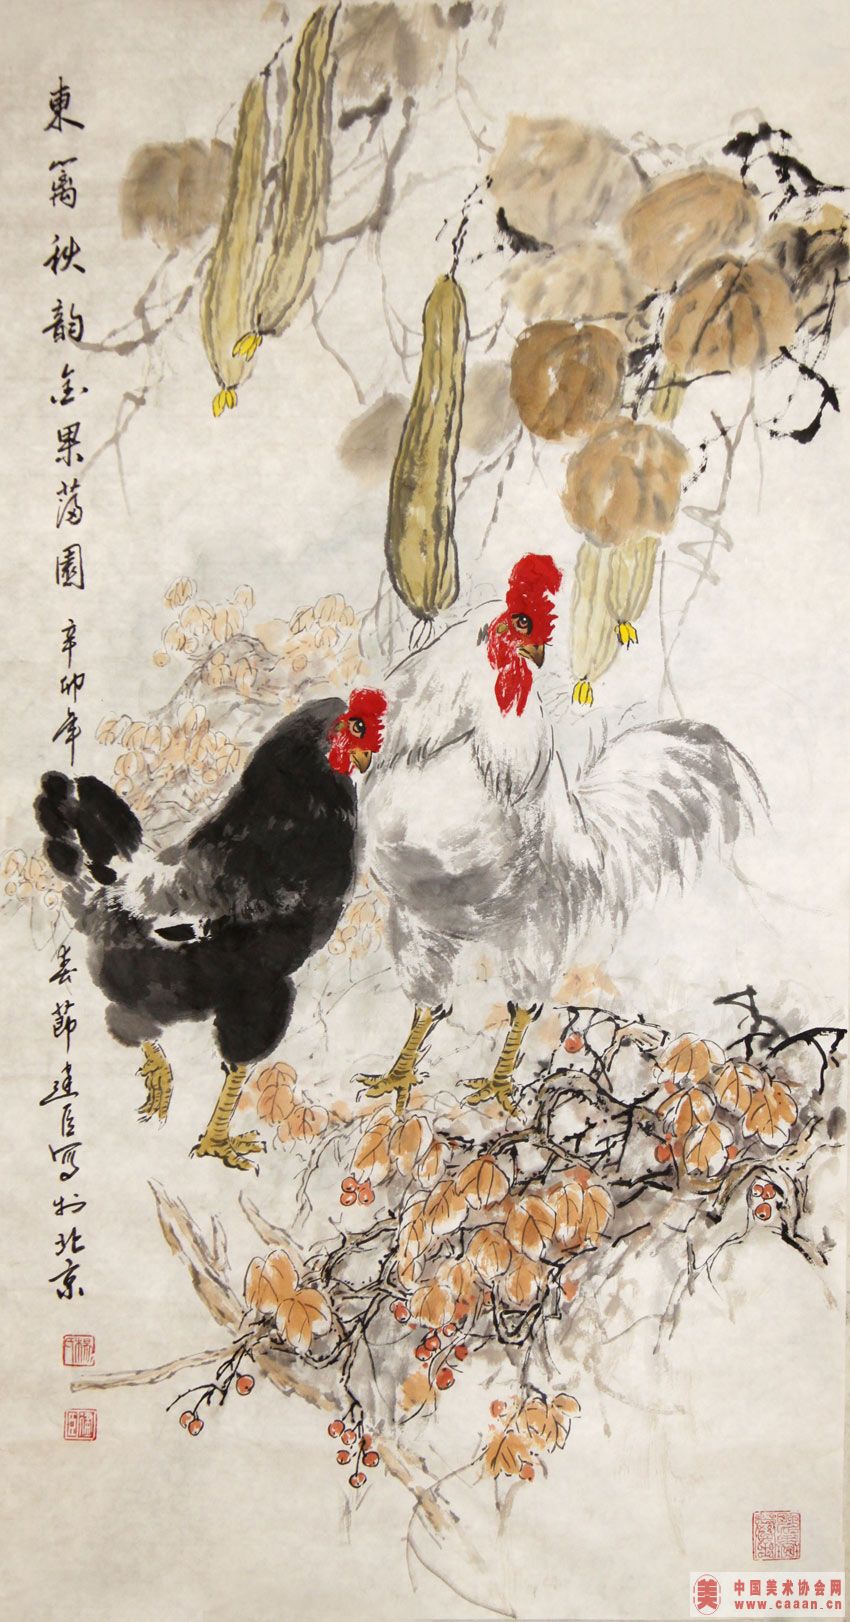 東篱秋韵金果满園 辛卯年
春節建臣写於北京
中国美术协会网
www.caaan.cn